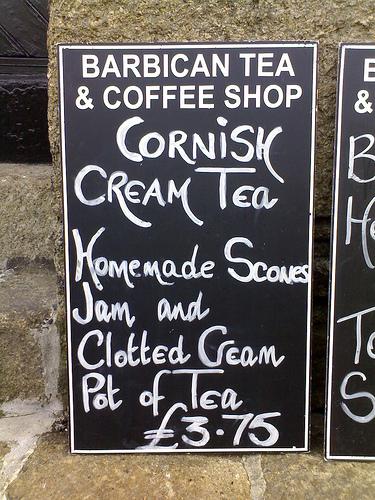 BARBICAN TEA
& COFFEE SHOP
CORNISH
CREAM TEA
Homemade Scones
Jam and
Clotted Cream
Pot of Tea
£3.75
&